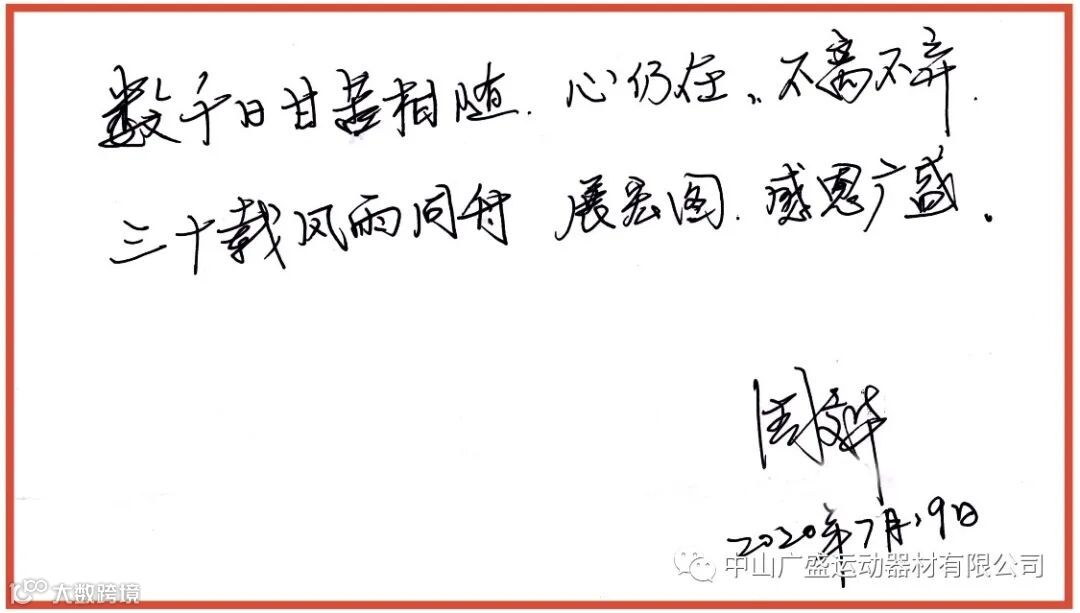 数千日甘苦相随.心仍在、不离不弃.
三十载风雨同舟 展宏图.感恩广盛。
周文华
2020年7月19日
中山广盛运动器材有限公司
大数跨境